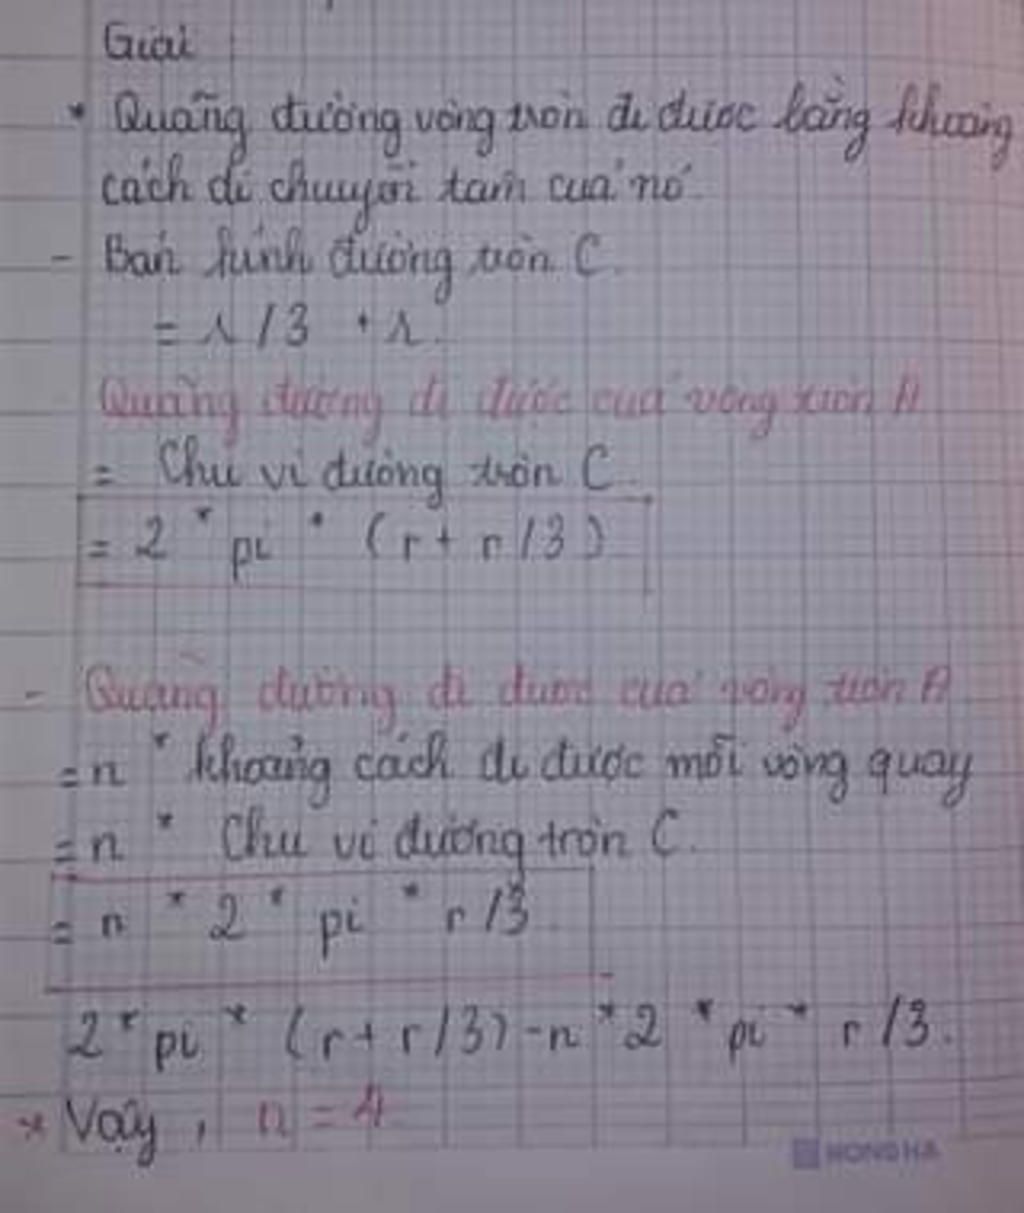 Giải
* Quãng đường vòng tròn đi được bằng khoảng
cách di chuyển tâm của nó.
- Bán kính đường tròn C.
= r/3 + r.
Quãng đường đi được của vòng tròn A
= Chu vi đường tròn C.
= 2 * pi * (r + r/3)
- Quãng đường đi được của vòng tròn A
= n * khoảng cách đi được mỗi vòng quay
= n * Chu vi đường tròn C.
= n * 2 * pi * r/3.
2 * pi * (r + r/3) - n * 2 * pi * r/3.
* Vậy, n = 4
HONG HA